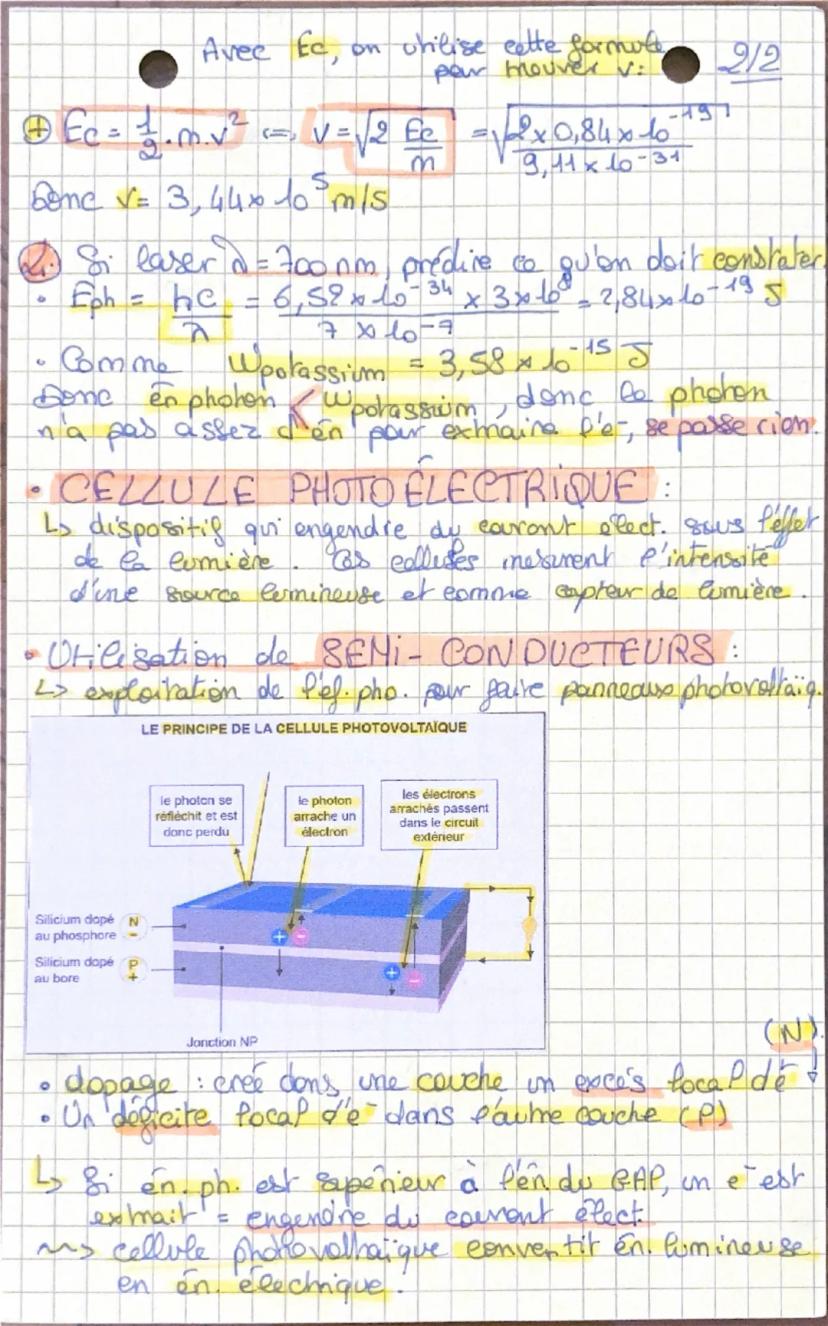 Avec Ec, on utilise cette formule
pour trouver v:
2/2
+ Ec = 1/2 . m.v² <=> v = √2 Ec/m = √2 x 0,84 x 10⁻¹⁹ / 9,11 x 10⁻³¹
Donc v = 3,44 x 10⁵ m/s
2. Si laser λ = 700 nm, prédire ce qu'on doit constater.
• Eph = hc/λ = 6,52 x 10⁻³⁴ x 3 x 10⁸ / 7 x 10⁻⁷ = 2,84 x 10⁻¹⁹ J
• Comme Wpotassium = 3,58 x 10⁻¹⁵ J
Donc én photon < Wpotassium, donc le photon
n'a pas assez d'én pour extraire l'e⁻, se passe rien.
• CELLULE PHOTOÉLECTRIQUE :
↳ dispositif qui engendre du courant élect. sous l'effet
de la lumière. Ces cellules mesurent l'intensité
d'une source lumineuse et comme capteur de lumière.
• Utilisation de SEMi-CONDUCTEURS :
↳ exploitation de l'ef. pho. pour faire panneaux photovoltaïq.
LE PRINCIPE DE LA CELLULE PHOTOVOLTAÏQUE
le photon se
réfléchit et est
donc perdu
le photon
arrache un
électron
les électrons
arrachés passent
dans le circuit
extérieur
Silicium dopé
au phosphore
N
-
Silicium dopé
au bore
P
+
+ -
+ -
Jonction NP
(N)
• dopage : crée dans une couche un excès local d'e⁻
• Un déficite local d'e⁻ dans l'autre couche (P)
↳ Si én. ph. est supérieur à l'én du GAP, un e⁻ est
extrait = engendre du courant élect.
~~> cellule photovoltaïque convertit én. lumineuse
en én. électrique.